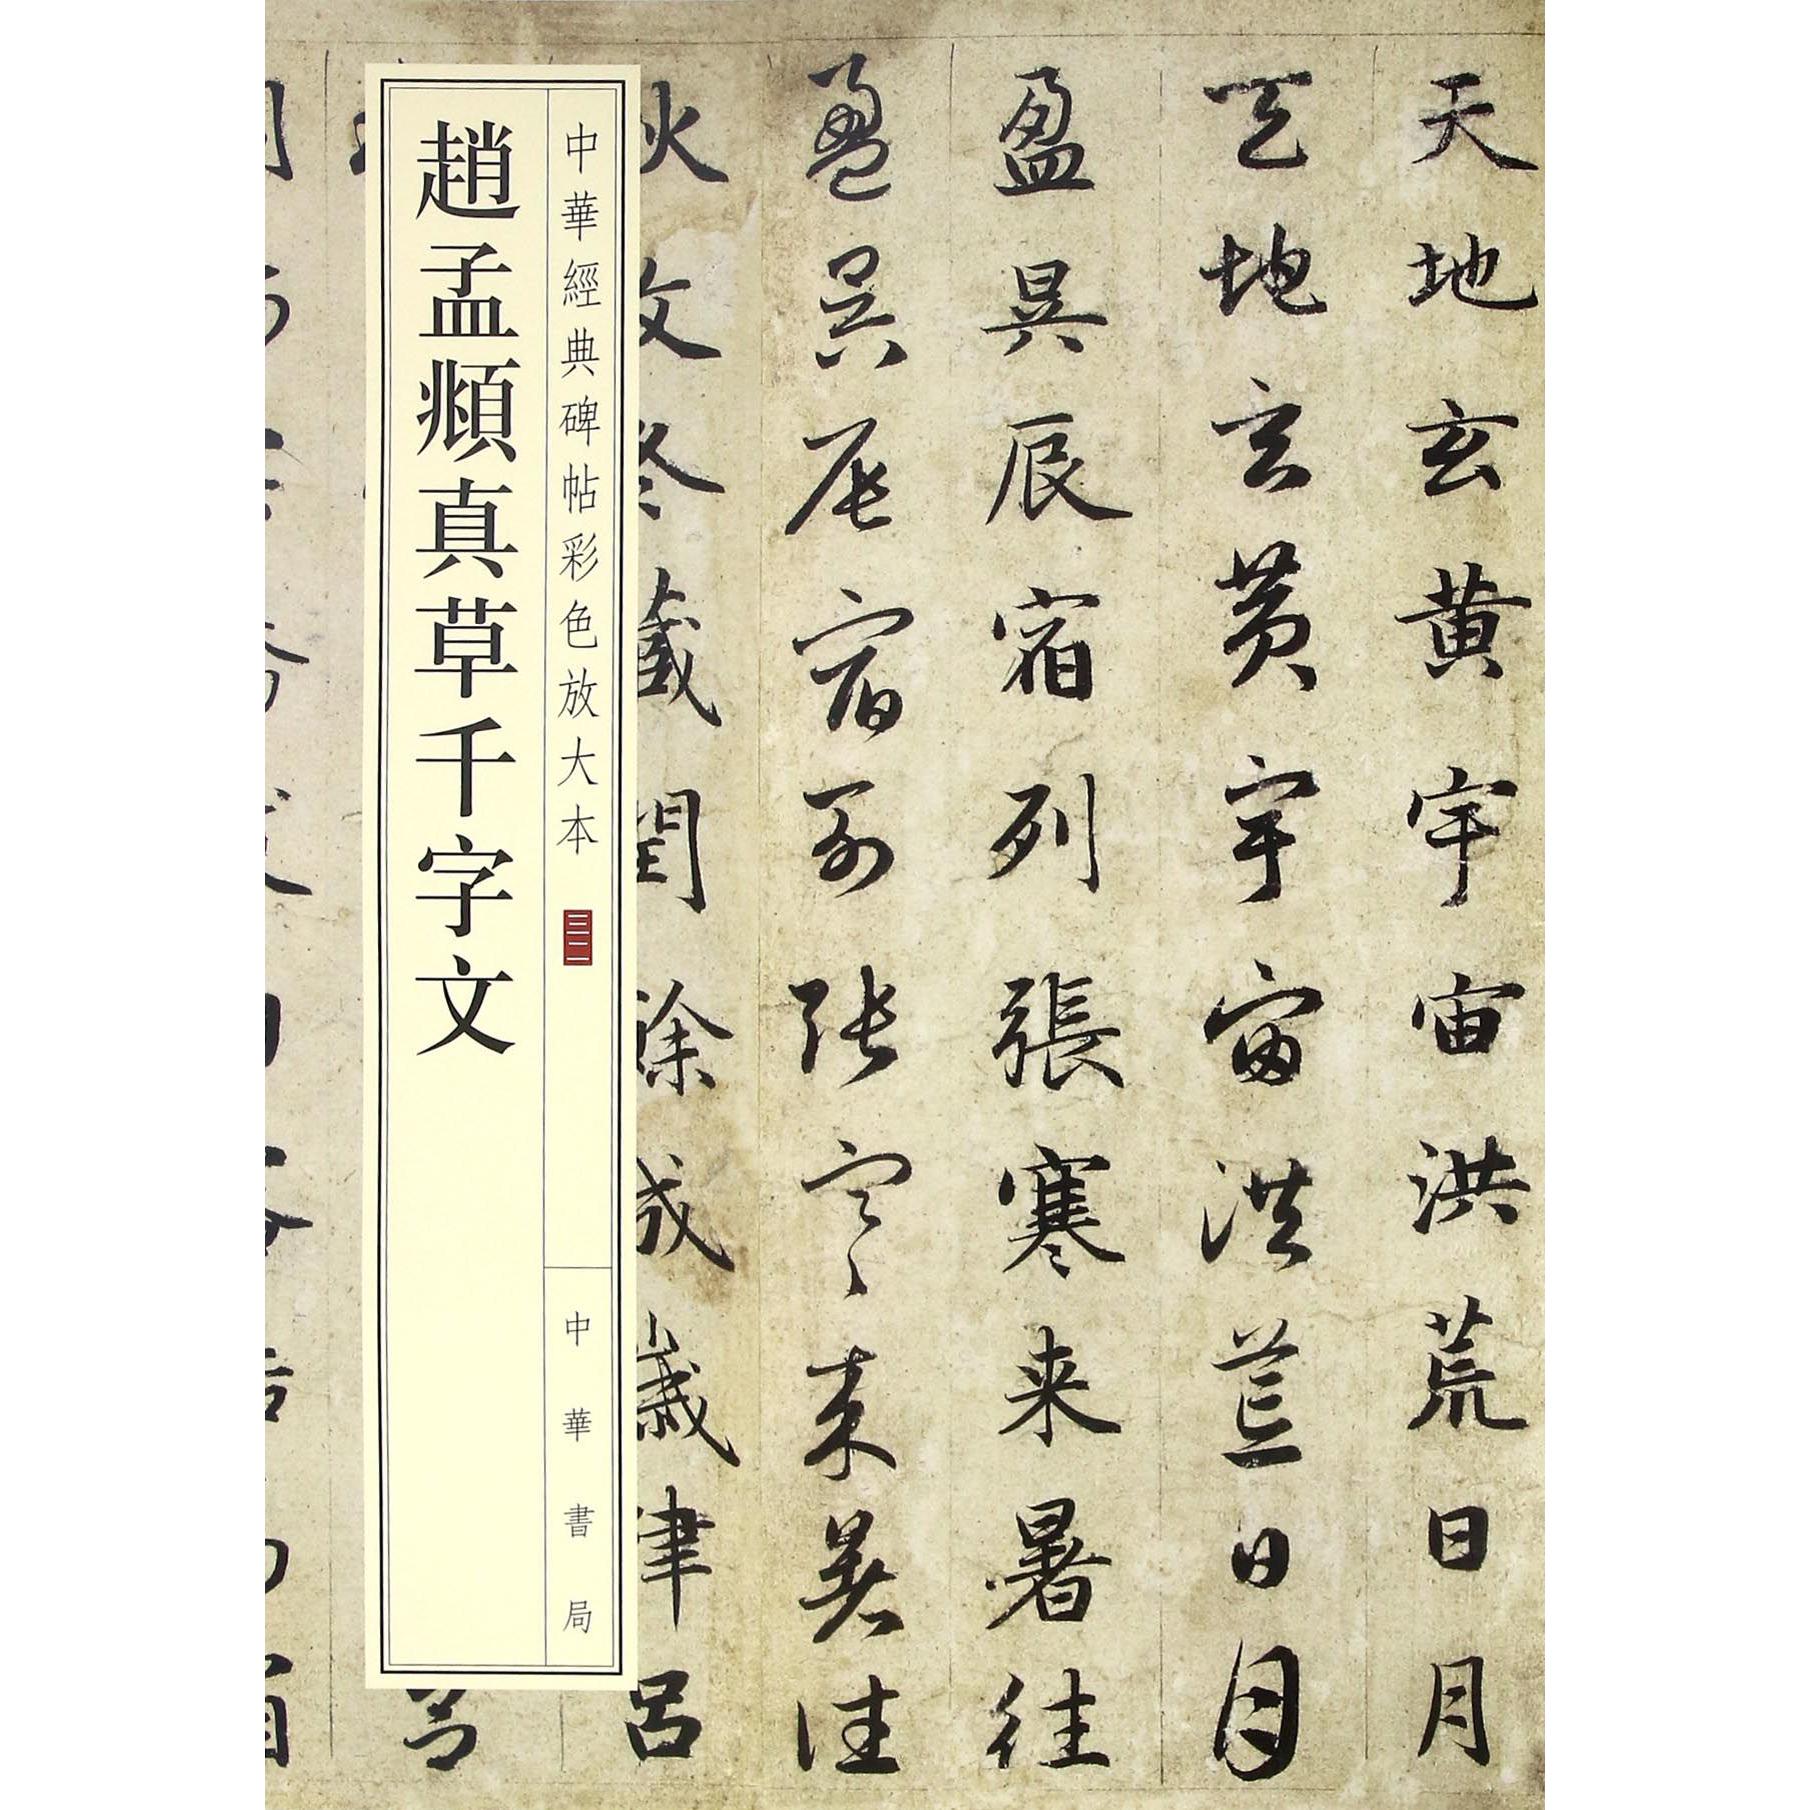 天地玄黄宇宙洪荒日月
天地玄黄宇宙洪荒日月
盈昃辰宿列張寒来暑往
盈昃辰宿列張寒来暑往
秋收冬藏閏餘成歲律吕
中華經典碑帖彩色放大本 三二
中華書局
趙孟頫真草千字文